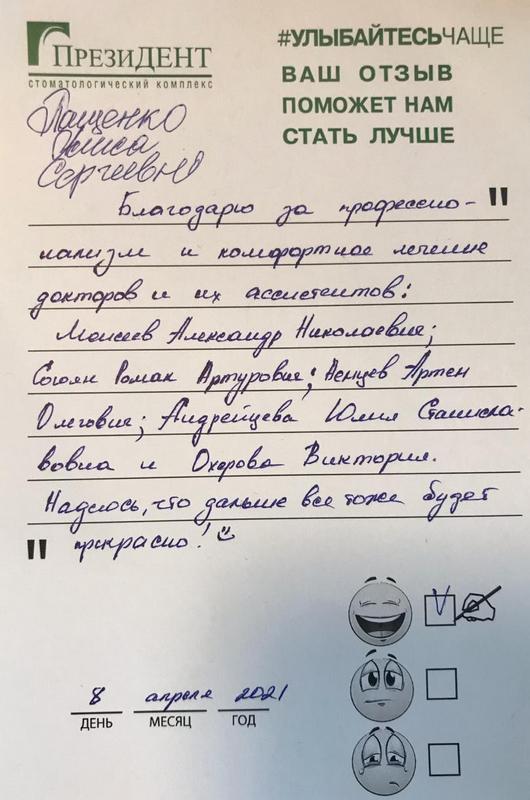 ПРЕЗИДЕНТ
СТОМАТОЛОГИЧЕСКИЙ КОМПЛЕКС
#УЛЫБАЙТЕСЬЧАЩЕ
ВАШ ОТЗЫВ
ПОМОЖЕТ НАМ
СТАТЬ ЛУЧШЕ
Пащенко
Олиса
Сергеевна
"
Благодарю за профессио-
нализм и комфортное лечение
докторов и их ассистентов:
Моисеев Александр Николаевич;
Согоян Роман Артурович; Немцев Артем
Олегович; Андрейцева Юлия Станисла-
вовна и Охорова Виктория.
Надеюсь, что дальше все тоже будет
" прекрасно!
8 апреля 2021
ДЕНЬ МЕСЯЦ ГОД